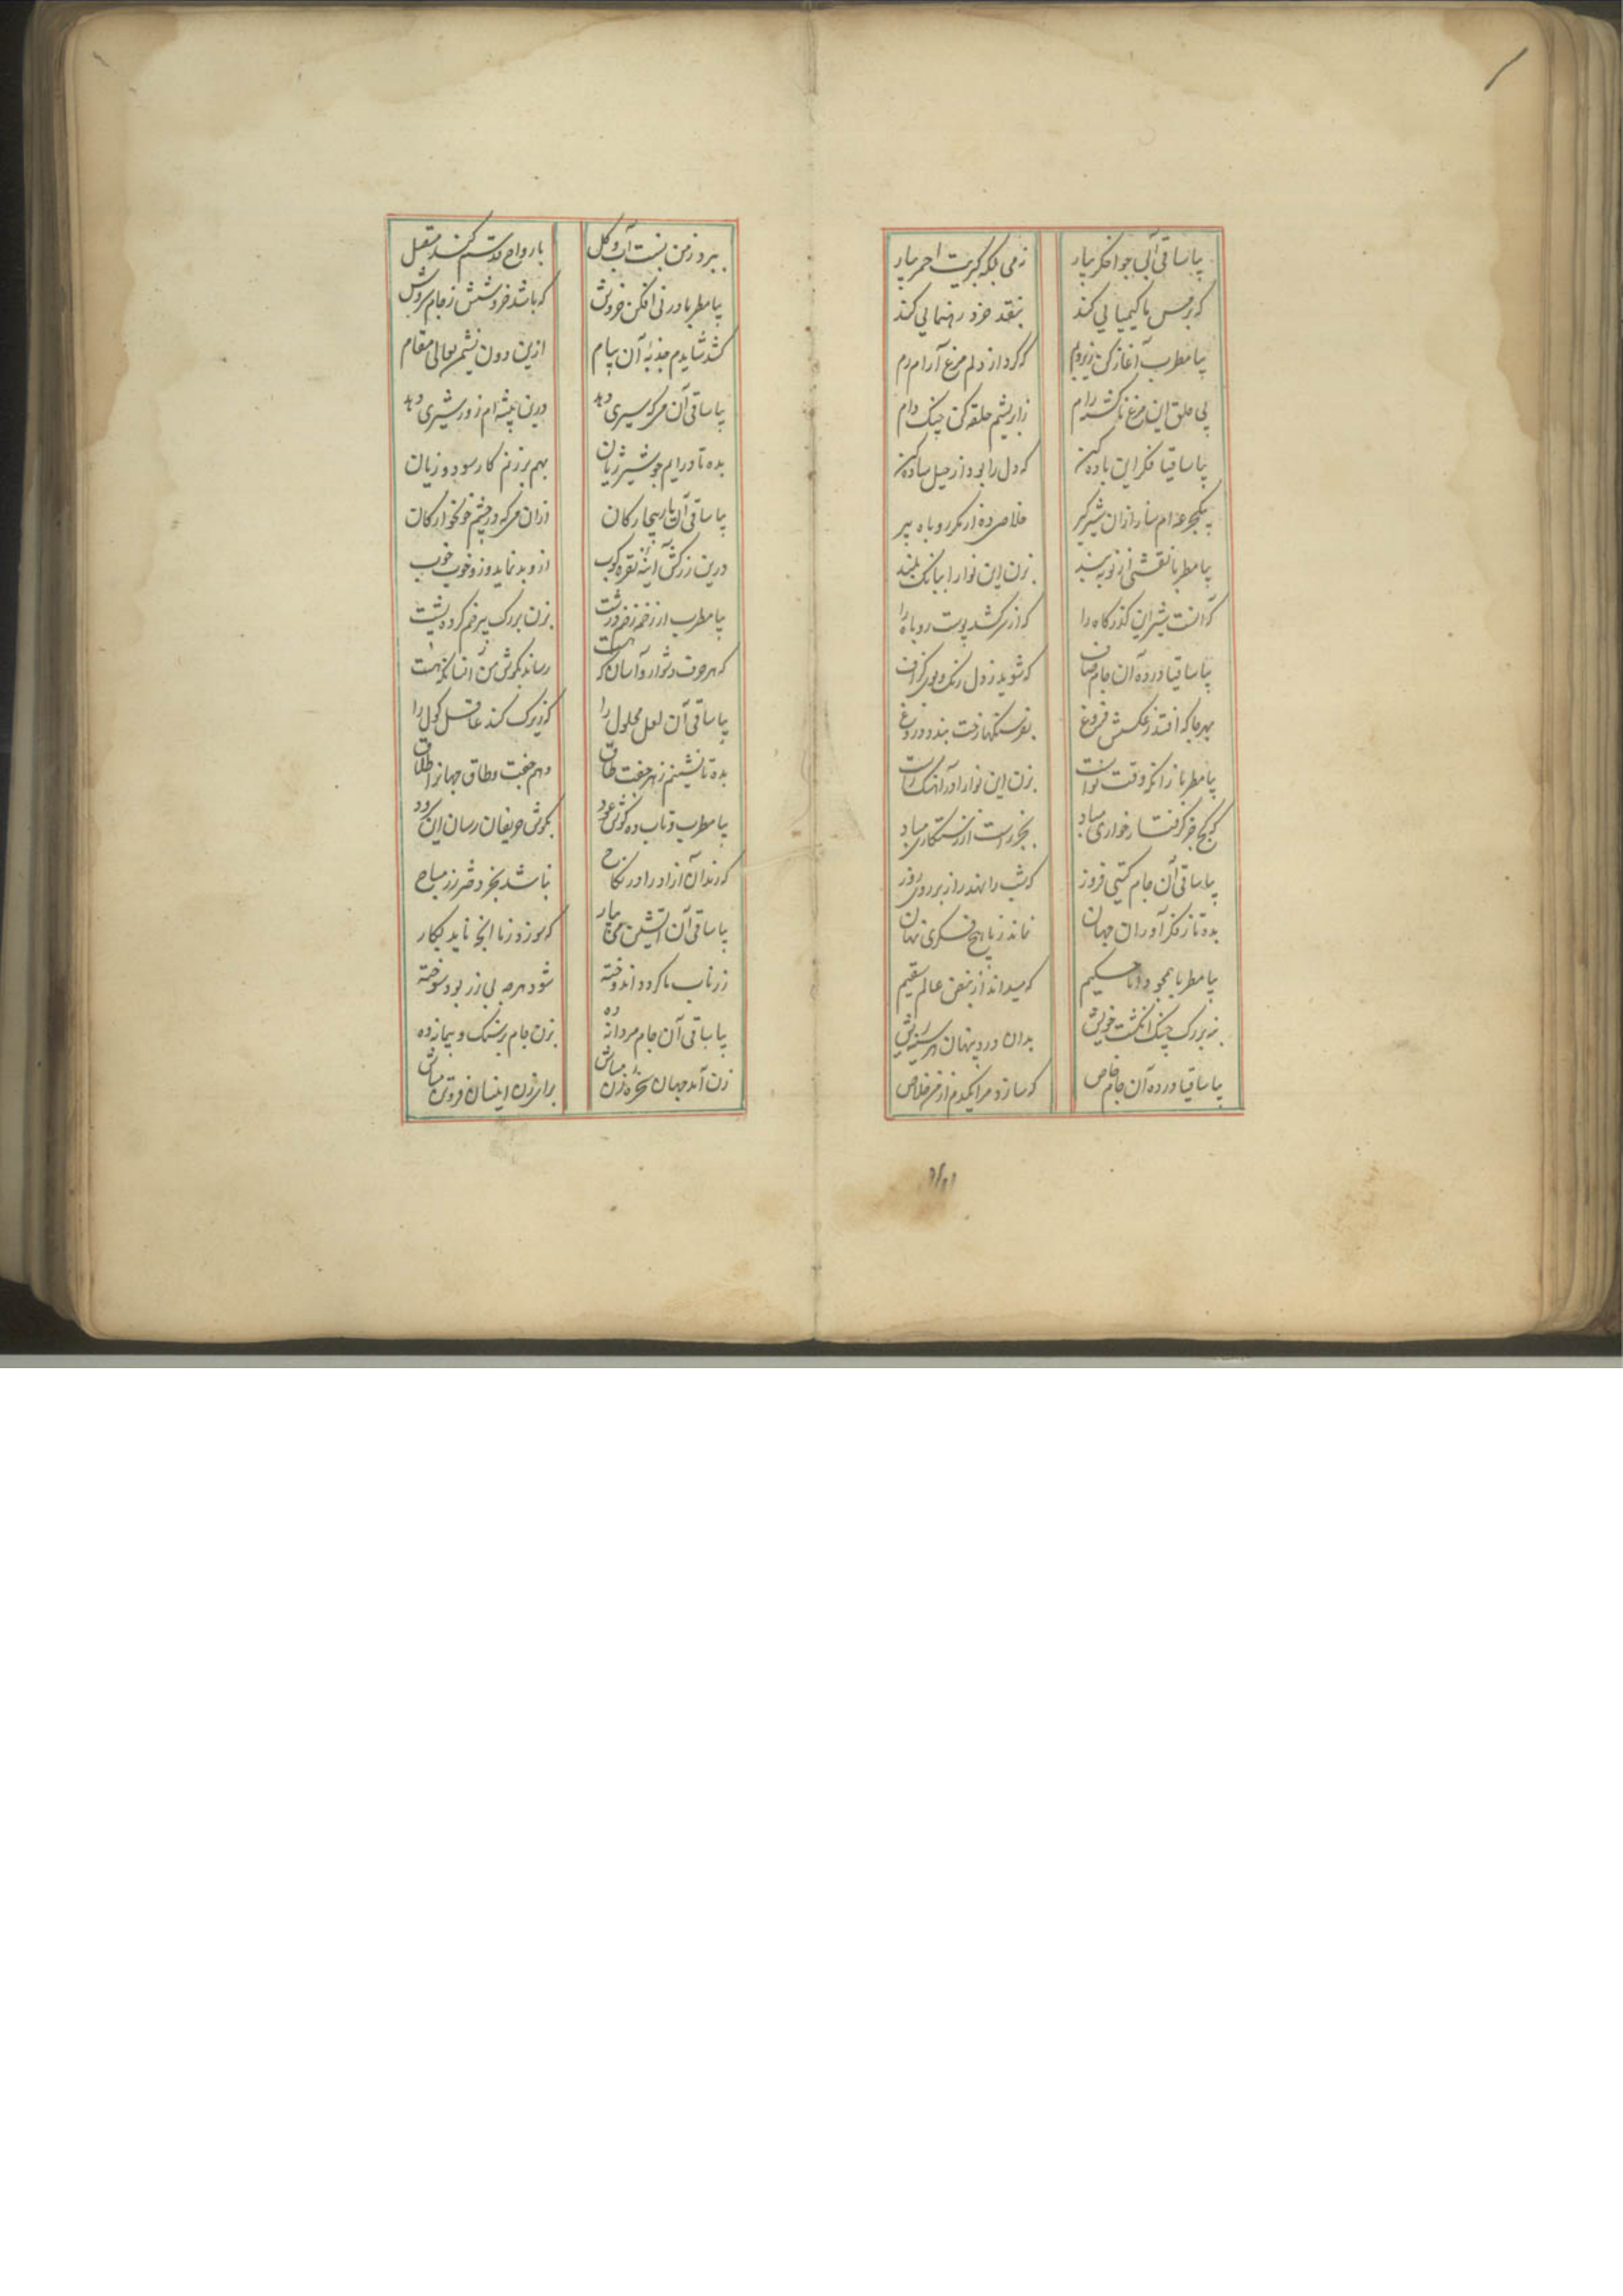 بیا ساقی آبی چو اخگر بیار زمی بلکه کبریت احمر بیار
که بر مس ما کیمیایی کند بنقد خرد رهنمایی کند
بیا مطرب آغاز کن زیر و بم که کرد از دلم مرغ آرام رم
پی حلق این مرغ ناگشته رام ز ابریشم حلقه کن چنگ دام
بیا ساقیا فکر این باده کن که دل را بود از حیل ساده کن
بیکجرعه ام ساز ازان شیرگیر خلاصی ده از مکر روباه پیر
بیا مطربا نقشی از نو ببند بزن این نوا را ببانگ بلند
که آنست شیر این گذرگاه را که از سر کشد پوست روباه را
بیا ساقیا در ده آن جام صاف که شوید ز دل رنگ و بوی گزاف
بهر جا که افتد ز عکسش فروغ بفرسنگها رخت بندد دروغ
بیا مطربا زانکه وقت نواست بزن این نوا را در آهنگ راست
که کج جز گرفتار خواری مباد بجز راست از رستگاری مباد
بیا ساقی آن جام گیتی فروز که شب را نهد راز بر روی روز
بده تا ز فکر آوران جهان نماند ز ما هیچ فکری نهان
بیا مطربا همچو دانا حکیم که میداند از نبض عالم سقیم
بنه بر رگ چنگ انگشت خویش بدان درد پنهان هر سینه ریش
بیا ساقیا در ده آن جام خاص که سازد مرا یکدم از من خلاص
ببرد ز من نسبت آب و گل بارواح قدسم کند متصل
بیا مطربا در نی افکن خروش که باشد خروشش ز جام سروش
کشد شایدم جذبه آن پیام ازین دون نشیمن بعالی مقام
بیا ساقی آن می که سیری دهد درین بیشه ام زور شیری دهد
بده تا در آیم چو شیر ژیان بهم بر زنم کار سود و زیان
بیا ساقی آن یار بیچارگان ازان می که در چشم خونخوارگان
درین زرکش آیینه نقره کوب ازو بد نماید وزو خوب خوب
بیا مطرب از زخمه زخم درشت بزن بر رگ پیر خم کرده پشت
که هر حرف دشوار و آسان که هست رساند بگوش من انسان که هست
بیا ساقی آن لعل محلول را که زیرک کند عاقل گول را
بده تا نشینم ز هر جفت طاق دهم جفت و طاق جهانرا طلاق
بیا مطرب و تاب ده گوش عود بگوش حریفان رسان این سرود
که رندان آزاد را در نکاح نباشد بجز دختر رز مباح
بیا ساقی آن آتشین می بیار که سوزد ز ما آنچه ناید بکار
زر ناب ما گردد اندوخته شود هر چه بی زر بود سوخته
بیا ساقی آن جام مردانه ده بزن جام بر سنگ و پیمانه ده
زن آمد جهان سخره زن مباش برای زن اینسان فروتن مباش